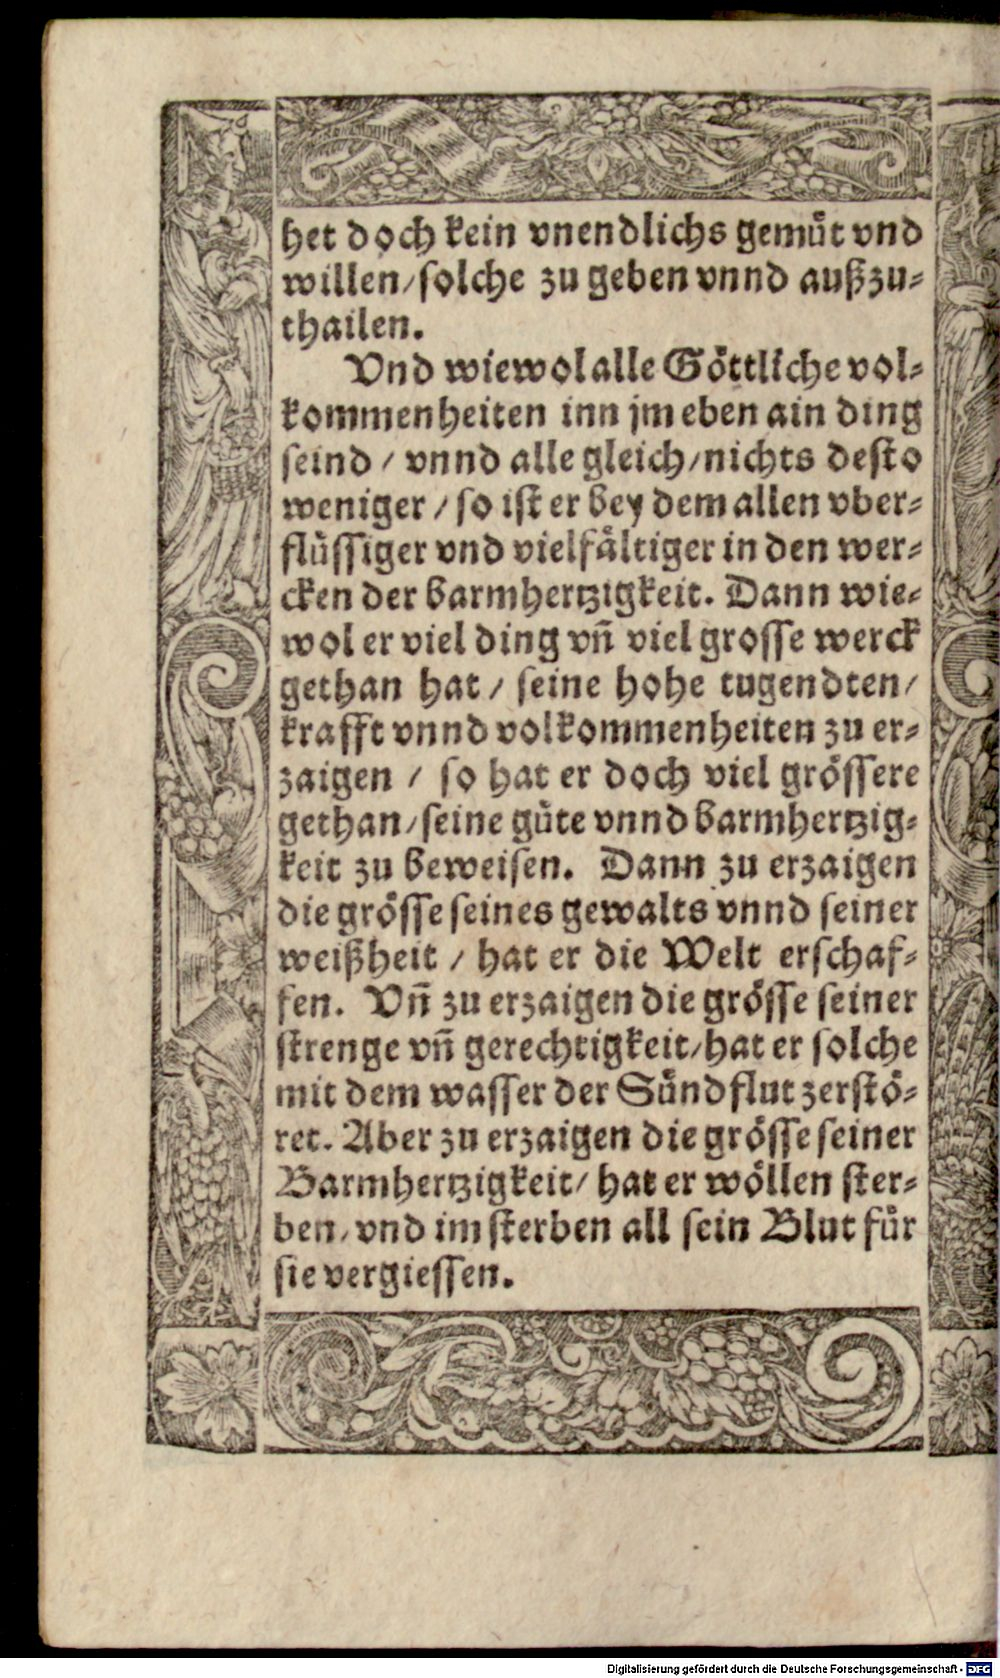 het doch kein vnendlichs gemuͤt vnd
willen/solche zu geben vnnd außzu-
thailen.
Vnd wiewol alle Goͤttliche vol-
kommenheiten inn jm eben ain ding
seind / vnnd alle gleich/nichts desto
weniger / so ist er bey dem allen vber-
fluͤssiger vnd vielfaͤltiger in den wer-
cken der barmhertzigkeit. Dann wie-
wol er viel ding vñ viel grosse werck
gethan hat / seine hohe tugendten/
krafft vnnd volkommenheiten zu er-
zaigen / so hat er doch viel groͤssere
gethan/seine guͤte vnnd barmhertzig-
keit zu beweisen. Dann zu erzaigen
die groͤsse seines gewalts vnnd seiner
weißheit / hat er die Welt erschaf-
fen. Vñ zu erzaigen die groͤsse seiner
strenge vñ gerechtigkeit/hat er solche
mit dem wasser der Suͤndflut zerstoͤ-
ret. Aber zu erzaigen die groͤsse seiner
Barmhertzigkeit/ hat er woͤllen ster-
ben/vnd im sterben all sein Blut fuͤr
sie vergiessen.
Digitalisierung gefördert durch die Deutsche Forschungsgemeinschaft - DFG